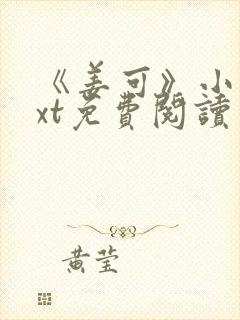 《姜可》小
xt免費閱讀
黄莹